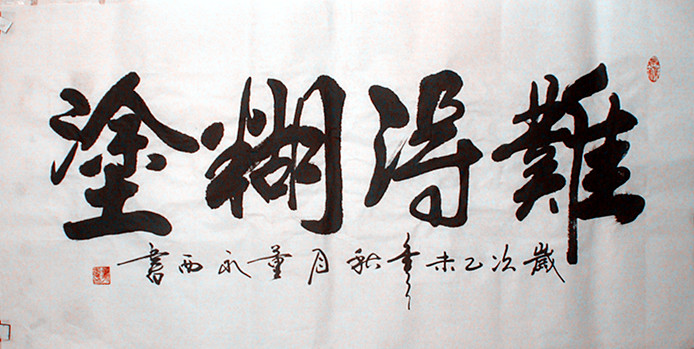 難得糊塗
歲次乙未年秋月董永西書